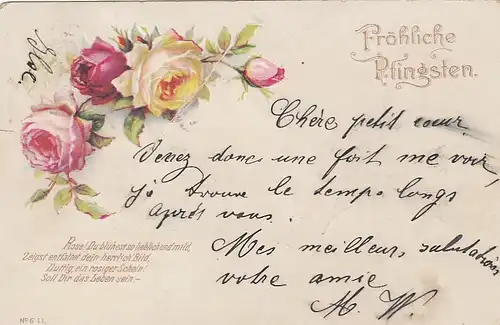 Fröhliche
Pfingsten.
Chère petit cœur.
Venez donc une foit me voir,
je trouve le temps longs
après vous.
Mes meilleurs salutations
votre amie
M. W.
Rose! Du blühest so lieblich und mild,
Zeigst entfaltet dein herrlich Bild,
Duftig, ein rosiger Schein!
Soll Dir das Leben sein.–
Nº 611.